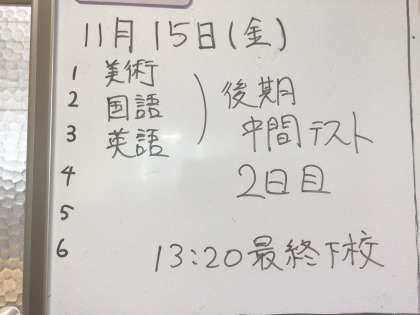 11月15日(金)
1 美術
2 国語
3 英語
後期
中間テスト
2日目
4
5
6
13:20最終下校